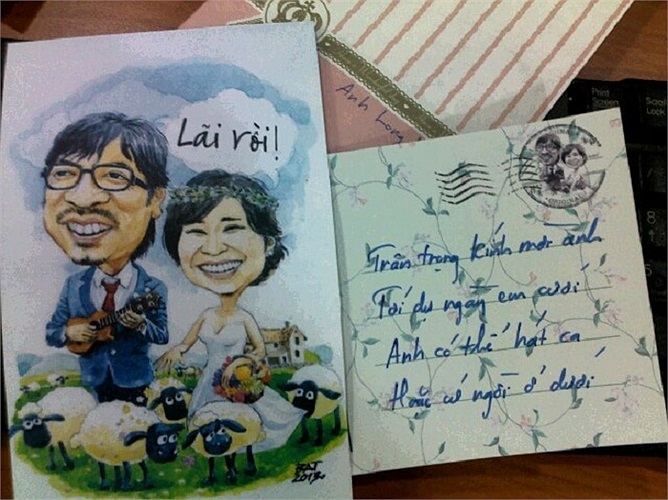 Lãi rồi!
BAT
2013
Anh Long
Print
Screen
Scro
Lock
Trân trọng kính mời anh
Tới dự ngày em cưới
Anh có thể hát ca
Hoặc cứ ngồi ở dưới